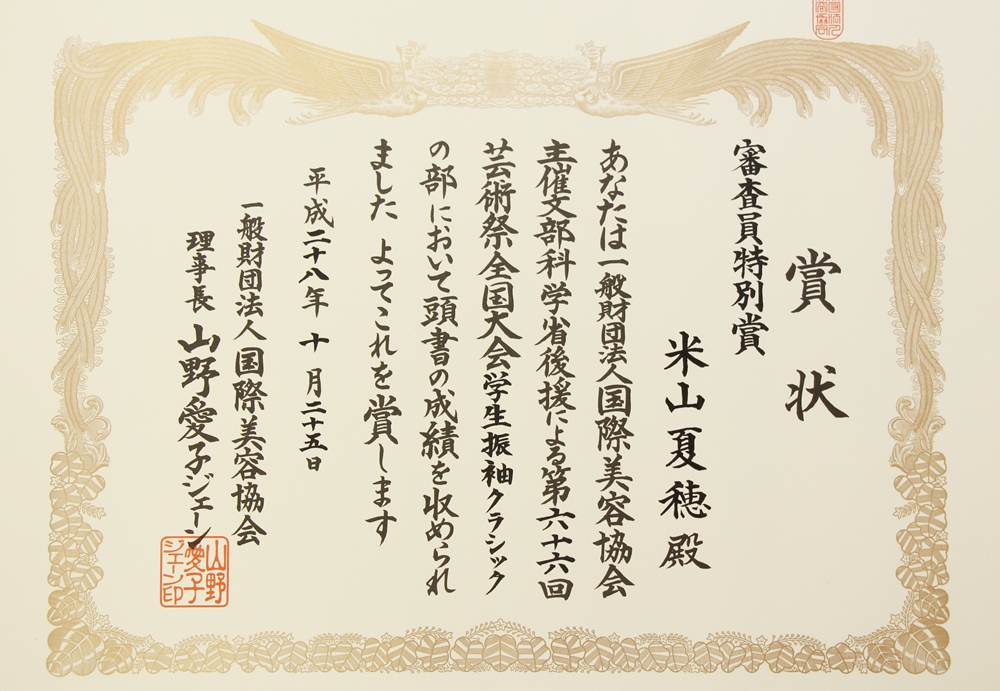 賞状
審査員特別賞
米山夏穂殿
あなたは一般財団法人国際美容協会
主催文部科学省後援による第六十六回
芸術祭全国大会学生振袖クラシック
の部において頭書の成績を収められ
ました よってこれを賞します
平成二十八年 十 月二十五日
一般財団法人 国際美容協会
理事長 山野愛子ジェーン
山野
愛子
ジェーン印